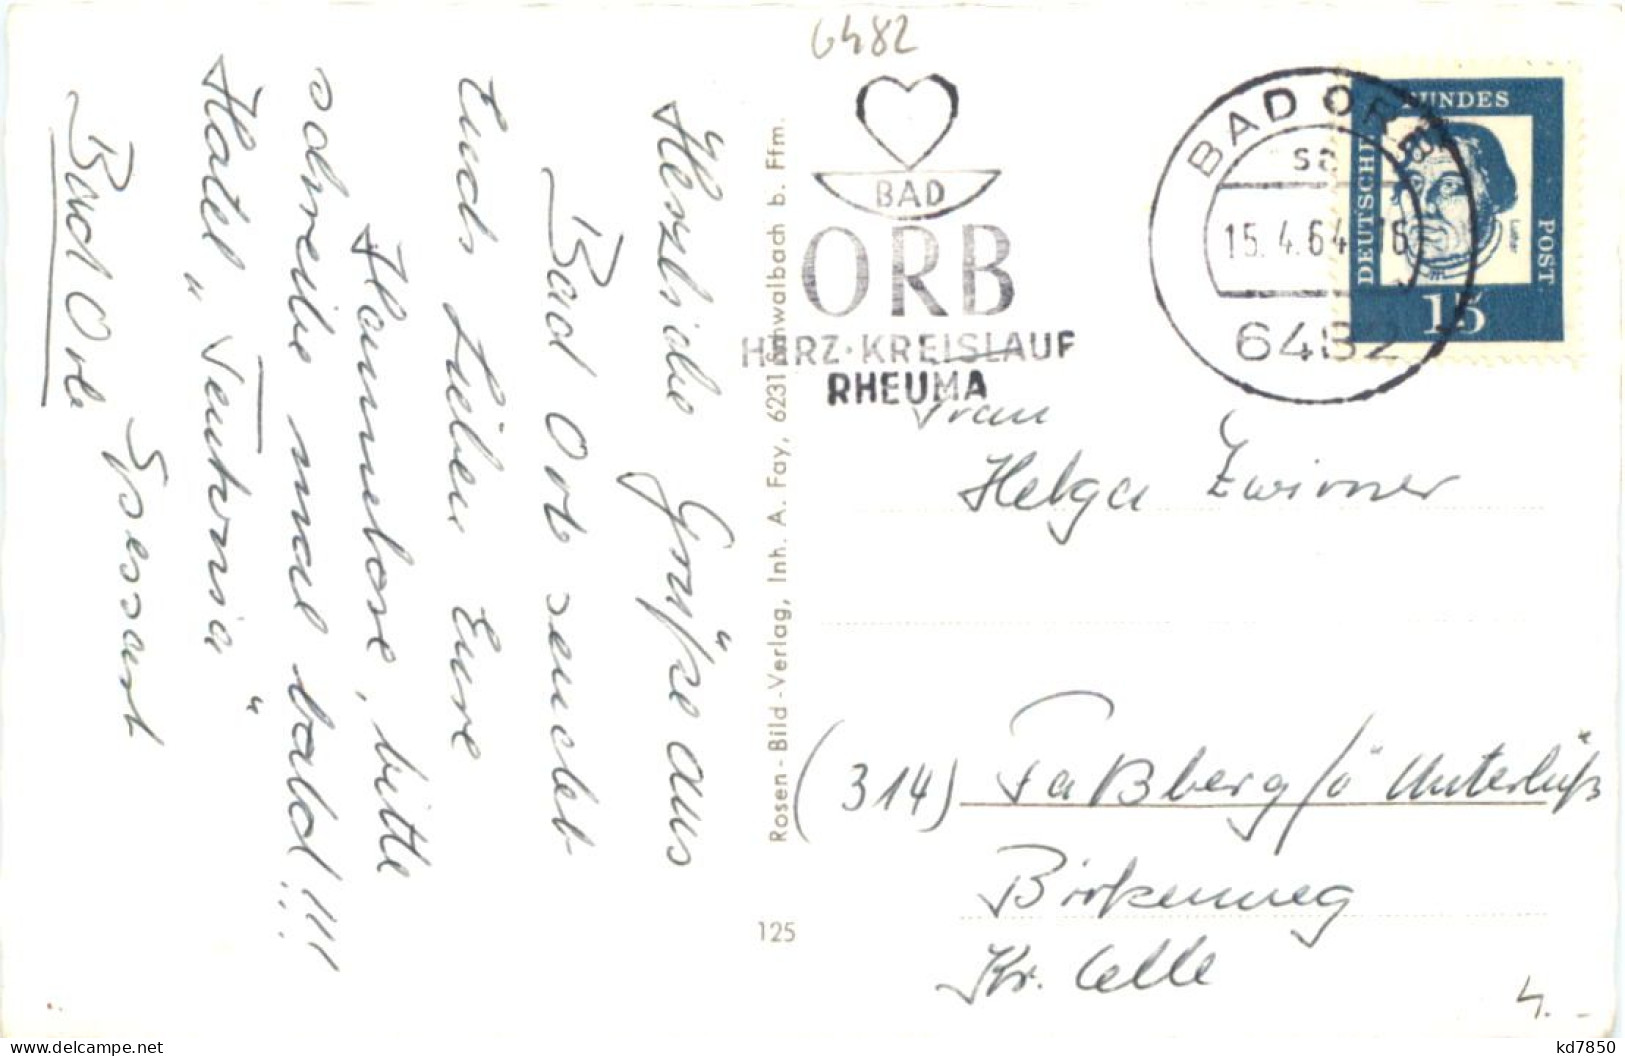 6482
BAD
ORB
HERZ·KREISLAUF
RHEUMA
BAD ORB
sa
15.4.64-16
6482
DEUTSCHE
BUNDES
POST
15
Herzliche Grüße aus
Bad Orb sendet
Euch Lieben Eure
Hannelore, bitte
schreibe mal bald!!!!
Hotel „Teutonia"
Spessart
Bad Orb
Rosen-Bild-Verlag, Inh. A. Fay, 6231 Schwalbach b. Ffm.
125
Frau
Helga Zwirner
(314) Faßberg/ü Unterlüß
Birkenweg
Kr. Celle
4.-
kd7850